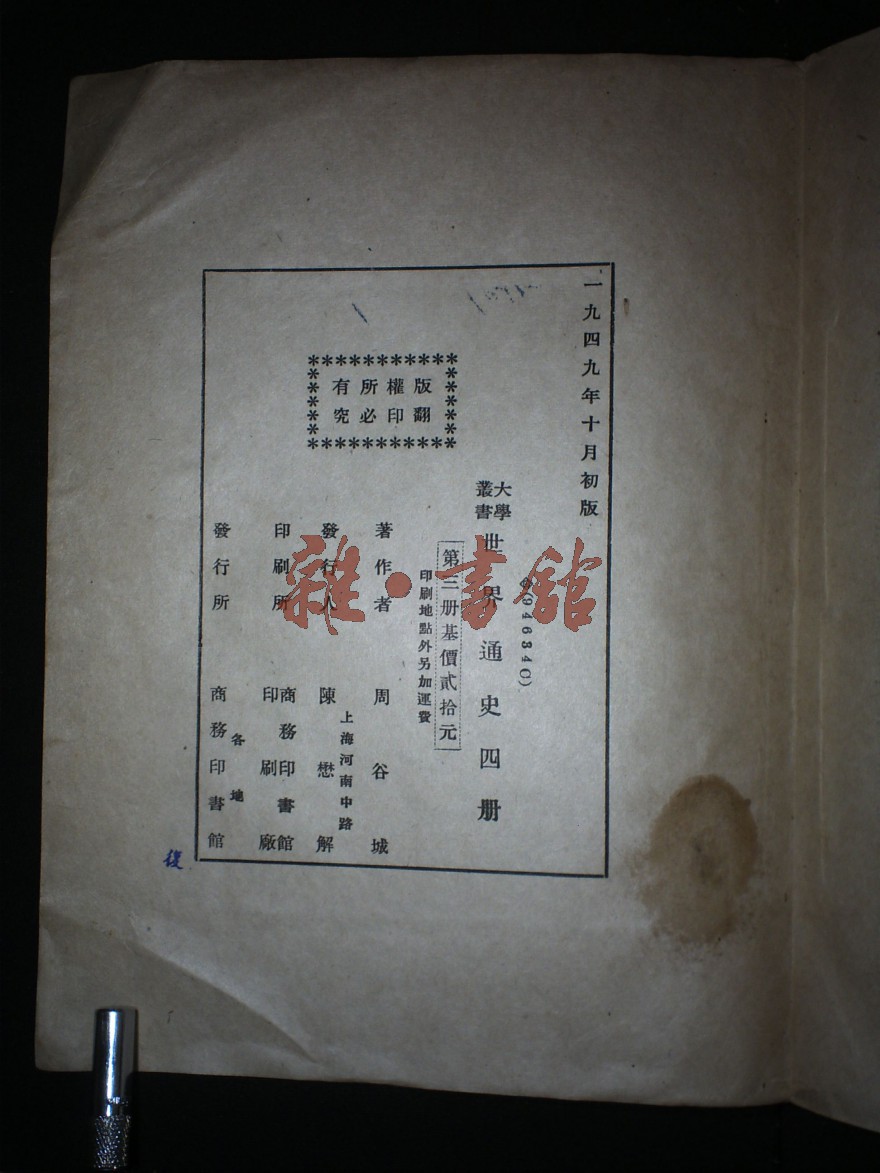 一九四九年十月初版
版權所有
翻印必究
大學叢書
世界通史四册
(94634C)
第三册基價貳拾元
印刷地點外另加運費
著作者 周谷城
上海河南中路
發行人 陳懋解
印刷所 商務印書館印刷廠
各地
發行所 商務印書館
復
雜·書館